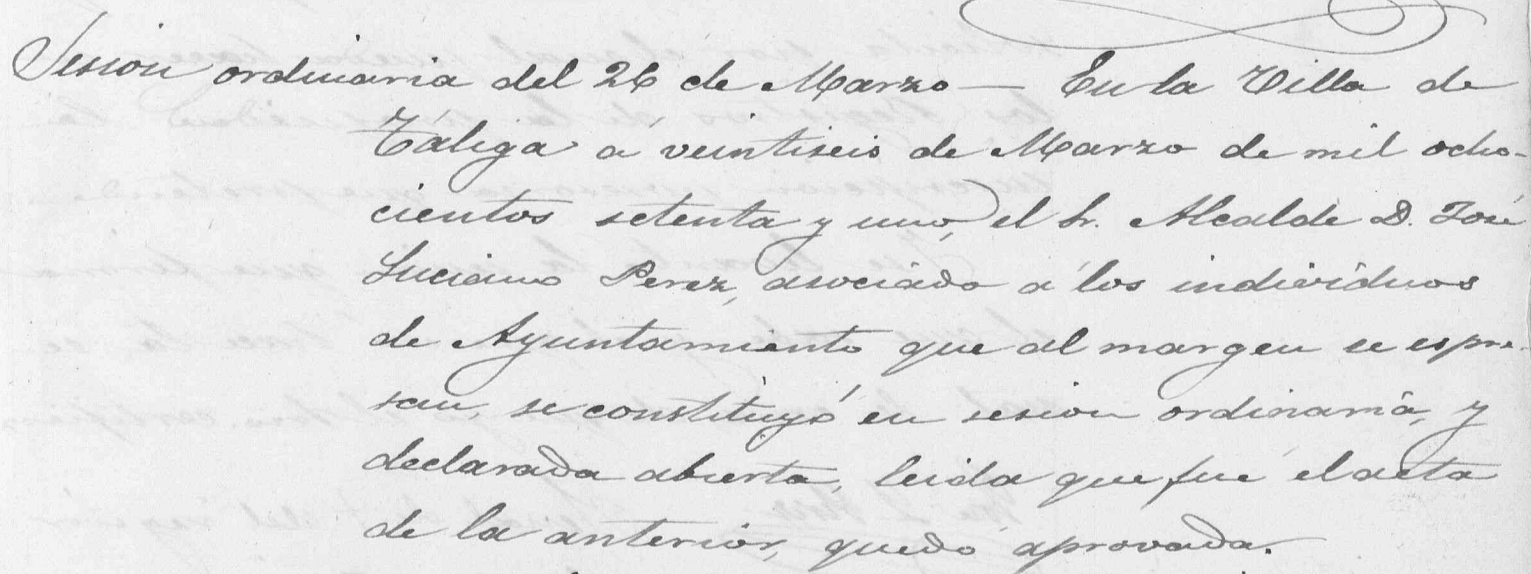 Sesion ordinaria del 26 de Marzo — En la Villa de
Táliga á veintiseis de Marzo de mil ocho-
cientos setenta y uno, el Sr. Alcalde D. José
Luciano Perez, asociado á los individuos
de Ayuntamiento que al margen se espre-
san, se constituyó en sesion ordinaria, y
declarada abierta, leida que fué el acta
de la anterior, quedó aprovada.